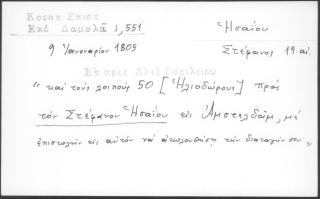 Κοραη Επιστ
Εκδ Δαμαλᾶ 1,551
Ἡσαΐου
9 Ἰανουαρίου 1805
Στέφανος 19 αἰ.
Ἐπ πρὸς Ἀλεξ Βασιλείου
"καὶ τοὺς λοιποὺς 50 [Ἡλιοδώρους] πρὸς
τὸν Στέφανον Ἡσαΐου εἰς Ἀμστελδὰμ, μὲ
ἐπιστολὴν εἰς αὐτὸν νὰ ἀκολουθήσῃ τὴν διαταγήν σου"